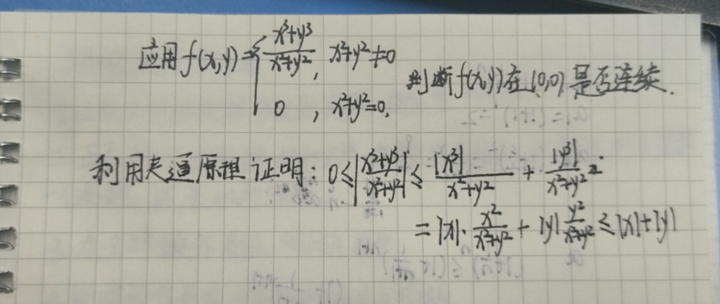 应用 f(x,y) = { (x³+y³)/(x²+y²), x²+y²≠0
0, x²+y²=0, 判断f(x,y)在(0,0)是否连续.
利用夹逼原理证明: 0≤|(x³+y³)/(x²+y²)| ≤ |x³|/(x²+y²) + |y³|/(x²+y²)
= |x|·x²/(x²+y²) + |y| y²/(x²+y²) ≤ |x|+|y|